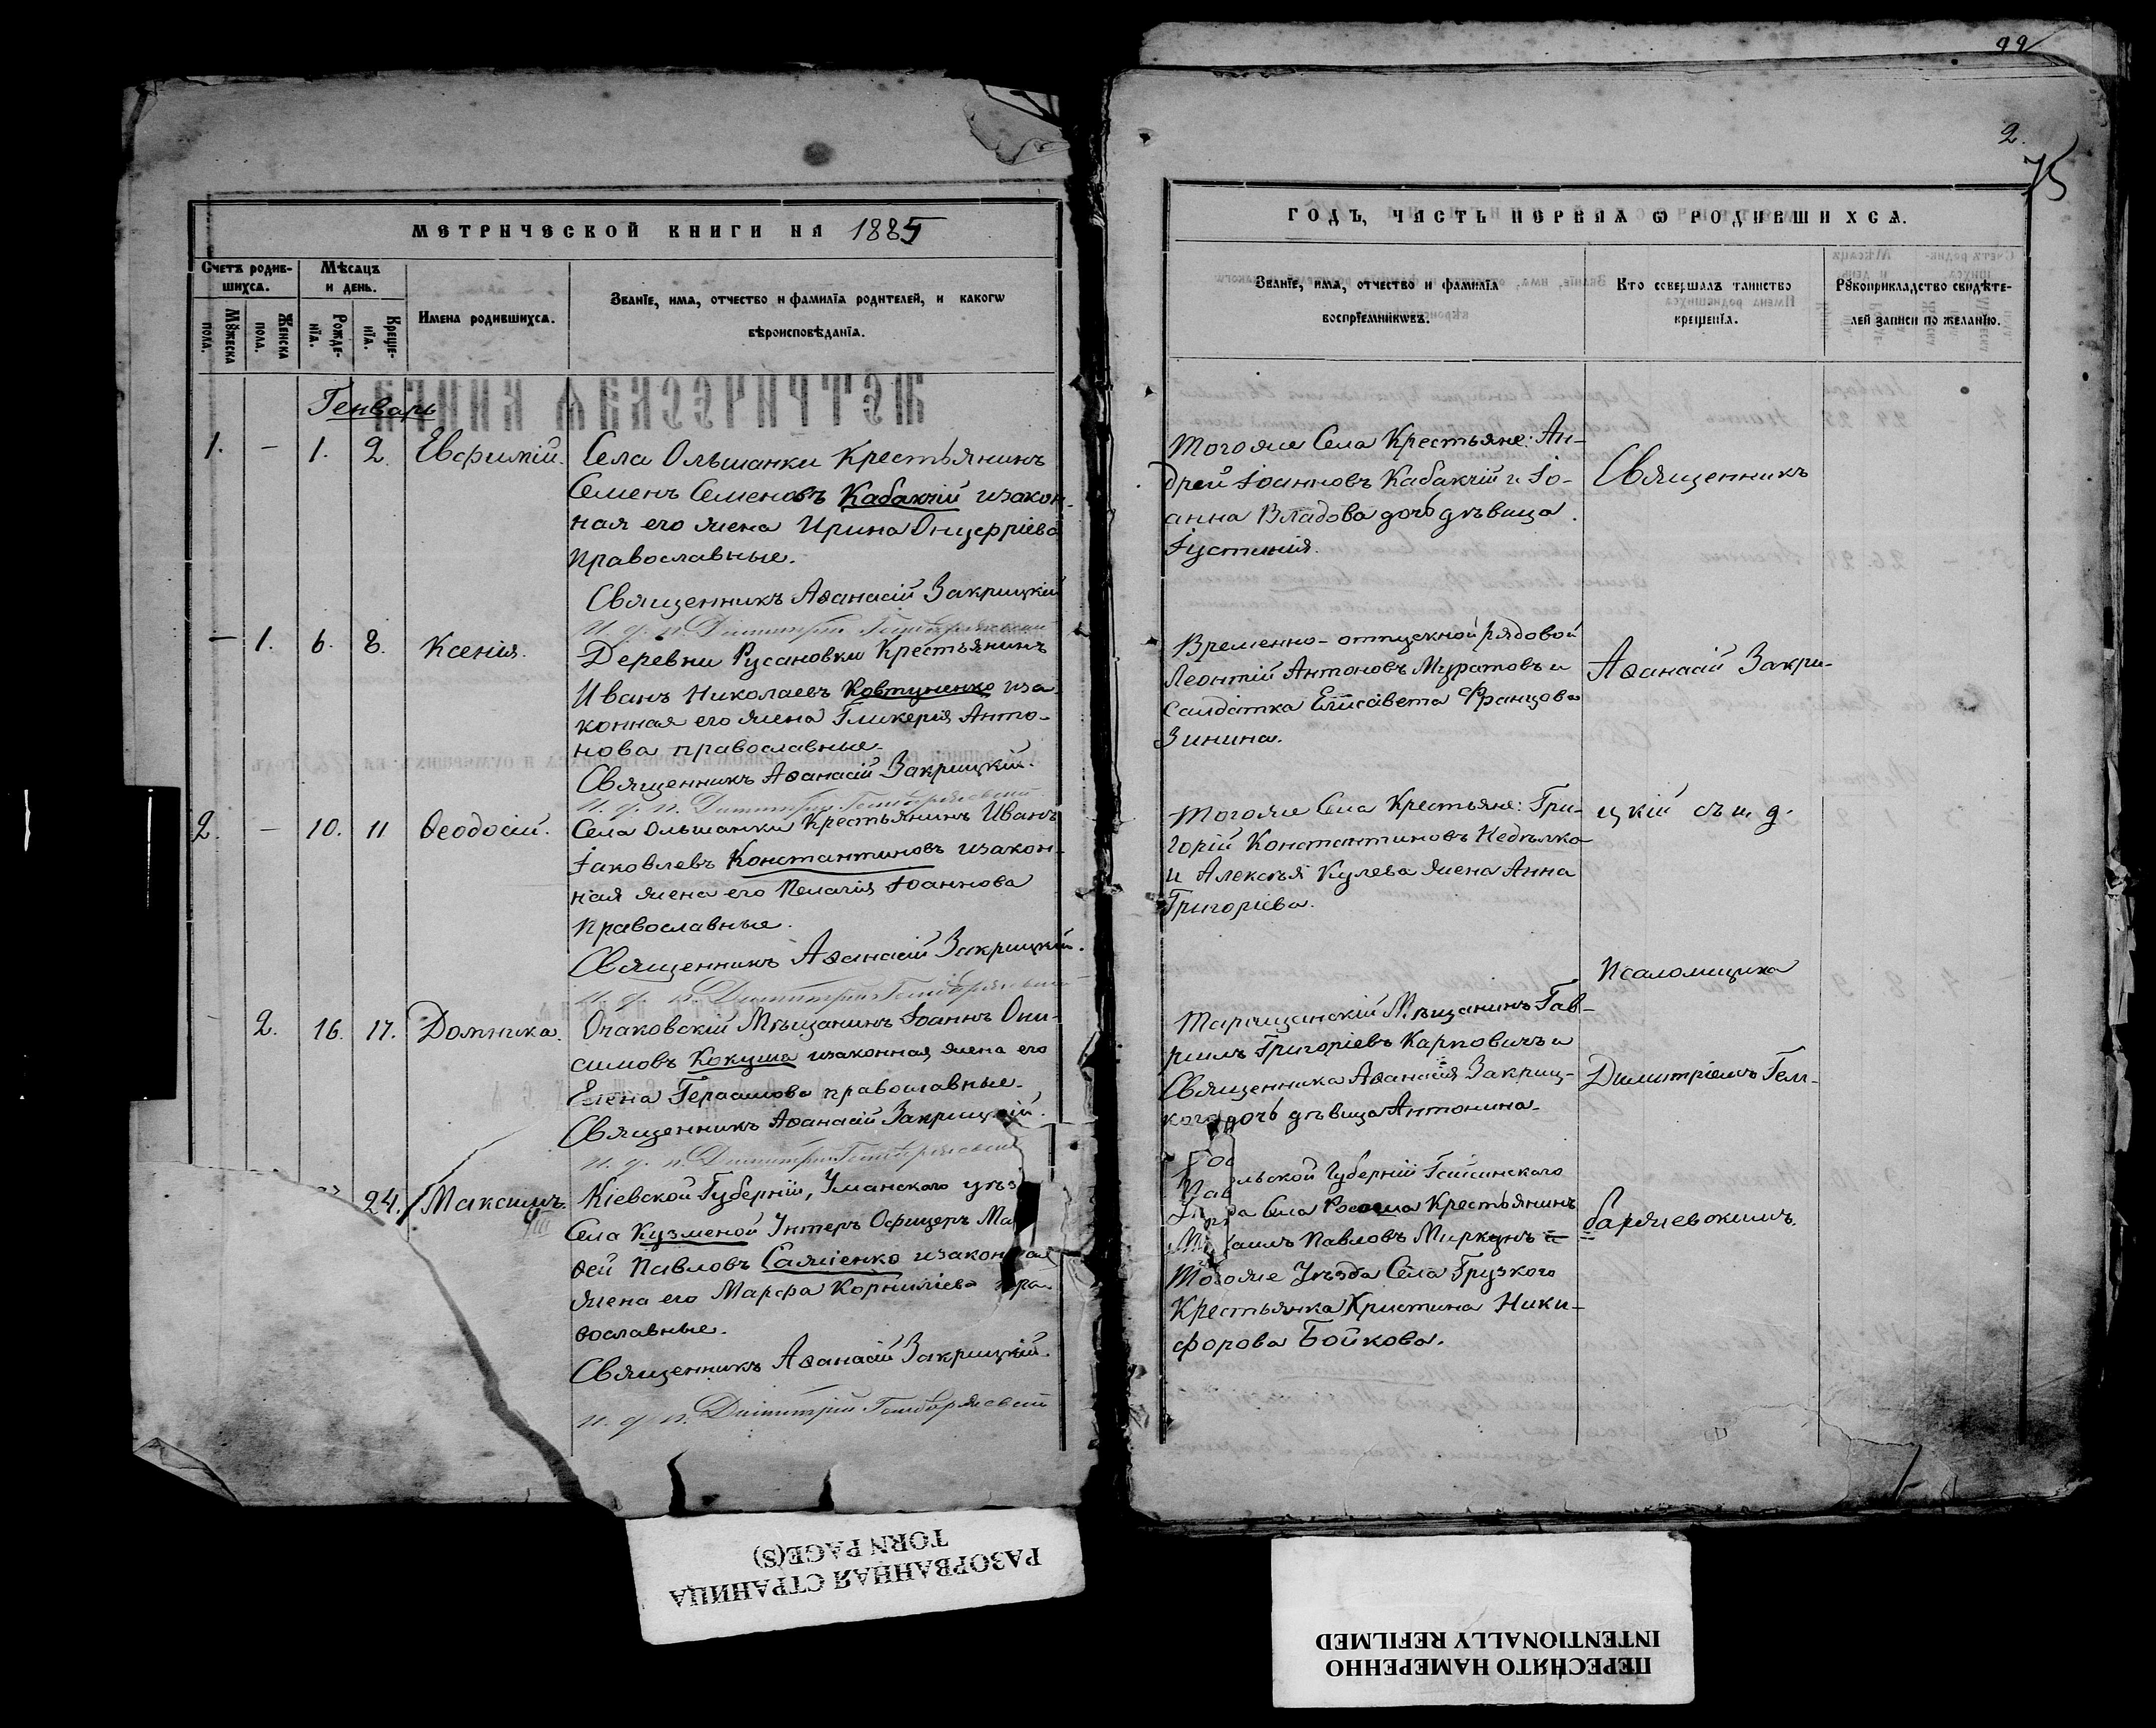 99
2.
75
МЕТРИЧЕСКОЙ КНИГИ НА 1885
Счетъ родив-
шихся.
Мѣсяцъ
и день.
Имена родившихся.
Званїе, имя, отчество и фамилїа родителей, и какогѡ
вѣроисповѣданїа.
Мꙋжеска
пола.
Женска
пола.
Рожде-
нїа.
Креще-
нїа.
Генварь
1. — 1. 2. Евфимій.
Села Ольшанки Крестьянинъ
Семенъ Семеновъ Кабакчій изакон-
ная его жена Ирина Онуфріева
православные.
Священникъ Аѳанасій Закрицкій
И. д. п. Димитрій Гембаржевскій
— 1. 6. 8. Ксенія.
Деревни Русановки Крестьянинъ
Иванъ Николаевъ Ковтуненко иза-
конная его жена Гликерія Анто-
нова православные.
Священникъ Аѳанасій Закрицкій.
И. д. п. Димитрій Гембаржевскій
2. — 10. 11 Ѳеодосій.
Села Ольшанки Крестьянинъ Иванъ
Іаковлевъ Константиновъ изакон-
ная жена его Пелагія Іоаннова
православные.
Священникъ Аѳанасій Закрицкій.
И. д. п. Димитрій Гембаржевскій
2. 16. 17. Домника.
Очаковскій Мѣщанинъ Іоаннъ Они-
симовъ Кокуша изаконная жена его
Елена Герасимова православные.
Священникъ Аѳанасій Закрицкій.
И. д. п. Димитрій Гембаржевскій
24. Максимъ.
Кіевской Губерніи, Уманскаго уѣз
Села Кузменой Унтеръ Офицеръ Ма
ѳей Павловъ Саяліенко изаконная
жена его Марфа Корниліева пра-
вославные.
Священникъ Аѳанасій Закрицкій.
И. д. п. Димитрій Гембаржевскій
ГОДЪ, ЧАСТЬ ПЕРВАЯ Ѡ РОДИВШИХСЯ.
Званїе, имя, отчество и фамилїа
воспрїемникѡвъ.
Кто совершалъ таинство
крещенїа.
Рꙋкоприкладство свидѣте-
лей записи по желанїю.
Тогоже Села Крестьяне: Ан-
дрей Іоанновъ Кабакчій и Іо-
анна Владова дочь дѣвица
Іустинія.
Временно-отпускной рядовой
Леонтій Антоновъ Муратовъ и
Салдатка Елисавета Францова
Зинина.
Тогоже Села Крестьяне: Гри-
горій Константиновъ Недѣлко
и Алексѣя Кулева жена Анна
Григоріева.
Таращанскій Мѣщанинъ Гав-
риилъ Григоріевъ Карповичъ и
Священника Аѳанасія Закриц-
кого дочь дѣвица Антонина.
льской Губерніи Гайсинскаго
да Села Росоша Крестьянинъ
Михаилъ Павловъ Миркунъ и
Тогоже Уѣзда Села Грузкого
Крестьянка Христина Ники-
форова Бойкова.
Священникъ
Аѳанасій Закри-
цкій съ и. д.
Псаломщика
Димитріемъ Гем-
баржевскимъ.
РАЗОРВАННАЯ СТРАНИЦА
TORN PAGE(S)
ПЕРЕСНЯТО НАМЕРЕННО
INTENTIONALLY REFILMED